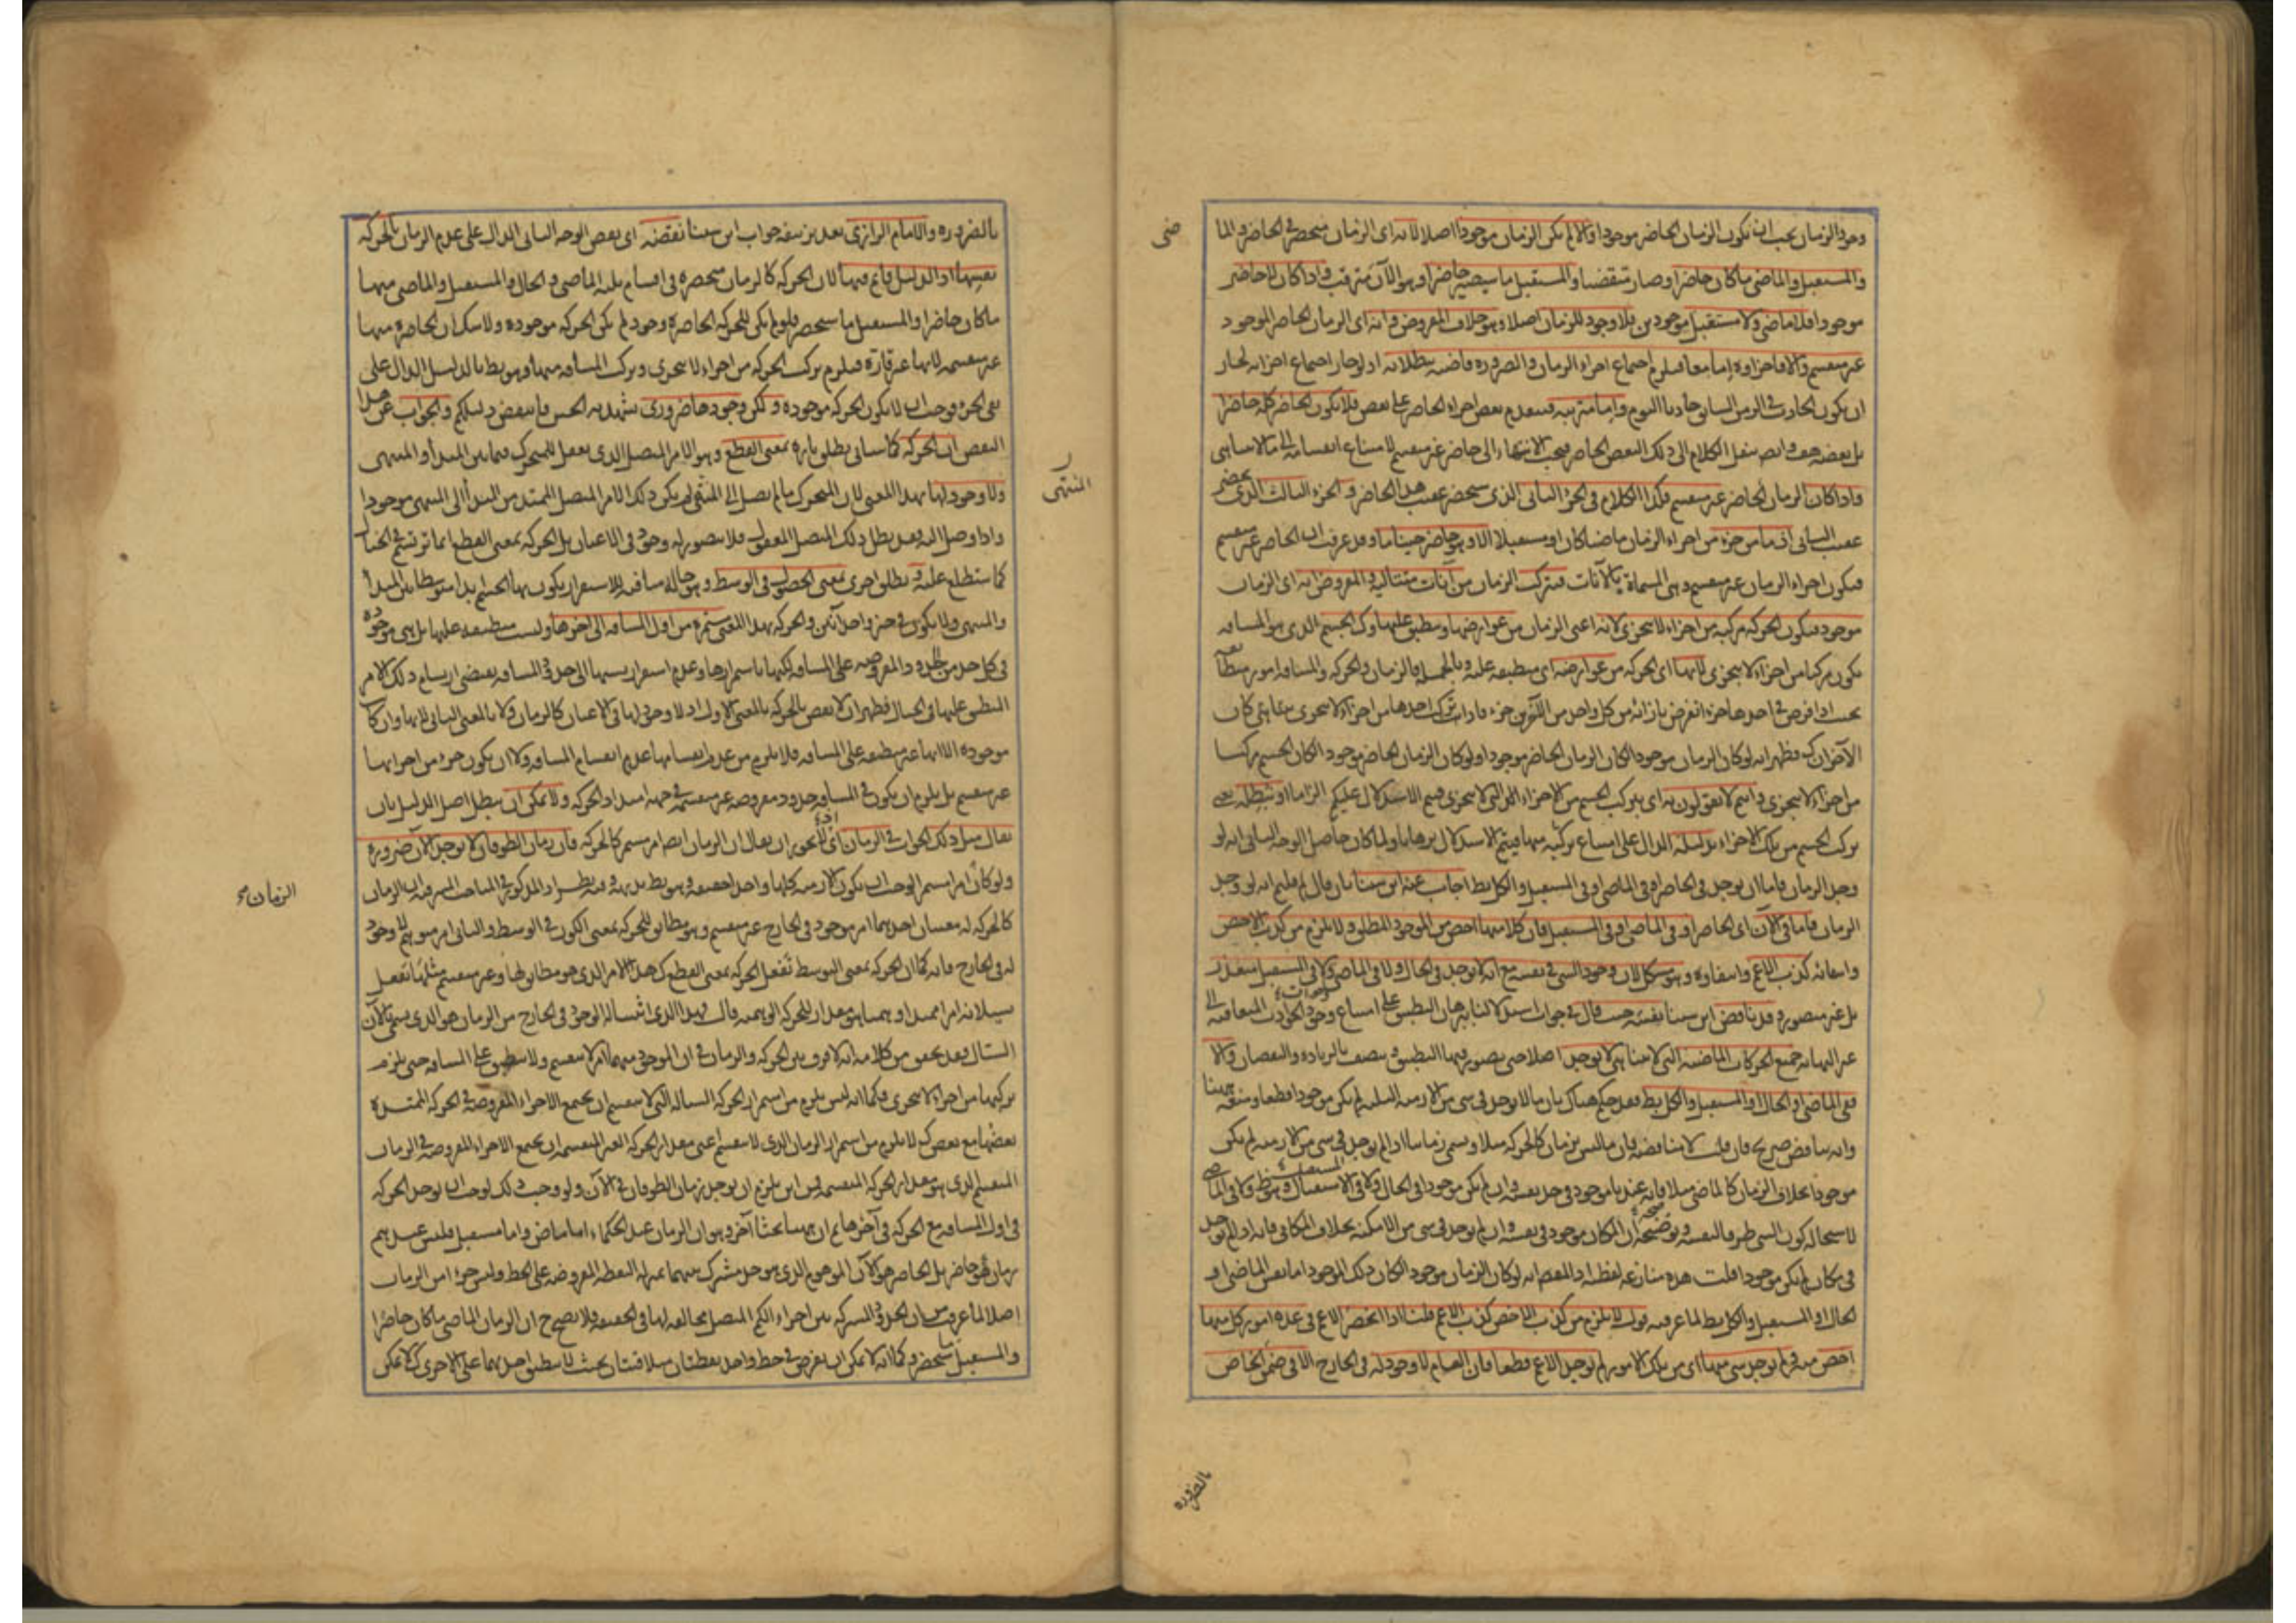 وجود الزمان يجب ان يكون الزمان الحاضر موجودا والا لم يكن الزمان موجودا اصلا لانه اى الزمان منحصر فى الحاضر والما
ضى
والمستقبل والماضى ما كان حاضرا وصار منقضيا والمستقبل ما سيصير حاضرا وهو الآن مترقب واذا كان لا حاضر
موجودا فلا ماضى ولا مستقبل موجودين فلا وجود للزمان اصلا وهو خلاف المفروض وانه اى الزمان الحاضر الموجود
غير منقسم والا فاجزاؤه اما معا فيلزم اجتماع اجزاء الزمان والضرورة قاضية ببطلانه اذ لو جاز اجتماع اجزائه لجاز
ان يكون الحادث فى الزمن السابق حادثا اليوم واما مترتبة فيتقدم بعض اجزاء الحاضر على بعض فلا يكون الحاضر كله حاضرا
بل بعضه هف وايضا ننقل الكلام الى ذلك البعض الحاضر فيجب الانتهاء الى حاضر غير منقسم لامتناع انقسامه الى ما لا يتناهى
واذا كان الزمان الحاضر غير منقسم فكذا الكلام فى الجزء الثانى الذى سيحضر عقيب هذا الحاضر و الجزء الثالث الذى يحضر
عقيب الثانى اذ ما من جزء من اجزاء الزمان ماضيا كان او مستقبلا الا وهو حاضر حينا ما وقد عرفت ان الحاضر غير منقسم
فيكون اجزاء الزمان غير منقسم وهى المسماة بالآنات فيتركب الزمان من آنات متتالية والمفروض انه اى الزمان
موجود فيكون الحركة مركبة من اجزاء لا يتجزى لانه اعنى الزمان من عوارضها ومنطبق عليها وكذا الجسم الذى هو المسافة
يكون مركبا من اجزاء لا يتجزى لانها اى الحركة من عوارضه اى منطبقة عليه وبالجملة فالزمان والحركة والمسافة امور متطابقة
بحيث اذا فرض فى احدها جزء انفرض بازائه من كل واحد من الآخرين جزء فاذا تركب احدها من اجزاء لا يتجزى كان
الآخران كك فظهر انه لو كان الزمان موجودا لكان الزمان الحاضر موجودا ولو كان الزمان الحاضر موجودا لكان الجسم مركبا
من اجزاء لا يتجزى وانتم لا تقولون به اى بتركب الجسم من الاجزاء التى لا يتجزى فيتم الاستدلال عليكم الزاما او نبطله يعنى
تركب الجسم من تلك الاجزاء بدليله الدال على امتناع تركبه منها فيتم الاستدلال برهانا ولما كان حاصل الوجه الثانى انه لو
وجد الزمان فاما ان يوجد فى الحاضر او فى الماضى او فى المستقبل والكل بط اجاب عنه ابن سينا بان قال لم قلتم انه لو وجد
الزمان فاما فى الآن اى الحاضر او فى الماضى او فى المستقبل فان كلا منها اخص من الموجود المطلق ولا يلزم من كذب الاخص
وانتفائه كذب الاعم وانتفاؤه وهو مشكل لان وجود الشئ فى نفسه مع انه لا يوجد فى الحال ولا فى الماضى ولا فى المستقبل متعذر
بل غير متصور وقد ناقض ابن سينا نفسه حيث قال فى جواب استدلالنا ببرهان التطبيق على امتناع وجود الحوادث المتعاقبة الى
غير النهاية جميع الحركات الماضية التى لا يتناهى لا يوجد اصلا حتى يتصور فيها التطبيق ويتصف بالزيادة والنقصان والا
ففى الماضى او الحال او المستقبل والكل بط فقد حكم هناك بان ما لا يوجد فى شئ من الازمنة الثلثة لم يكن موجودا قطعا ومنعه ههنا
وانه تناقض صريح فان قلت لا مناقضة فان ما ليس بزمان كالحركة مثلا ويسمى زمانيا اذا لم يوجد فى شئ من الازمنة لم يكن
موجودا بخلاف الزمان كالماضى مثلا فانه عندنا موجود فى حد نفسه وان لم يكن موجودا فى الحال ولا فى الاستقبال وهو ظ ولا فى الماضى
لاستحالة كون الشئ ظرفا لنفسه وتوضيحه ان المكان موجود فى نفسه وان لم يوجد فى شئ من الامكنة بخلاف المكانى فانه اذا لم يوجد
فى مكان لم يكن موجودا قلت هذه منازعة لفظية اذ المقصود انه لو كان الزمان موجودا لكان ذلك الموجود اما نفس الماضى او
الحال او المستقبل والكل بط لما عرفته قوله لا يلزم من كذب الاخص كذب الاعم قلنا اذا انحصر الاعم فى عدة امور كل منها
اخص منه فلم يوجد شئ منها اى من تلك الامور لم يوجد الاعم قطعا فان العام لا وجود له فى الخارج الا فى ضمن الخاص
بالضرورة
بالضرورة والامام الرازى بعد تزييفه جواب ابن سينا نقضه اى نقض الوجه الثانى الدال على عدم الزمان بالحركة
نفسها اذ الدليل قائم فيها لان الحركة كالزمان منحصرة فى اقسام ثلثة الماضى والحال والمستقبل والماضى منها
ما كان حاضرا والمستقبل ما سيحضر فلو لم يكن للحركة الحاضرة وجود لم يكن الحركة موجودة ولا شك ان الحاضرة منها
غير منقسمة لانها غير قارة فيلزم تركب الحركة من اجزاء لا يتجزى وتركب المسافة منها وهو بط بالدليل الدال على
نفى الجزء فوجب ان لا يكون الحركة موجودة ولكن وجودها ضرورى يشهد به الحس فانتقض دليلكم والجواب عن هذا
النقض ان الحركة كما سيأتى يطلق تارة بمعنى القطع وهو الامر المتصل الذى يعقل للمتحرك فيما بين المبدأ والمنتهى
ولا وجود لها بهذا المعنى لان المتحرك ما لم يصل الى المنتهى لم يكن ذلك الامر المتصل الممتد من المبدأ الى المنتهى موجودا
المنتهى
واذا وصل اليه فقد بطل ذلك المتصل المعقول فلا يتصور له وجود فى الاعيان بل الحركة بمعنى القطع انما ترتسم فى الخيال
كما ستطلع عليه و يطلق اخرى بمعنى الحصول فى الوسط وهو حالة منافية للاستقرار يكون بها الجسم ابدا متوسطا بين المبدأ
والمنتهى ولا يكون فى حيز واحد آنين والحركة بهذا المعنى مستمرة من اول المسافة الى آخرها وليست منطبقة عليها بل هى موجودة
فى كل حد من الحدود المفروضة على المسافة لكنها باستمرارها وعدم استقرار نسبتها الى حدود المسافة يقتضى ارتسام ذلك الامر
المنطبق عليها فى الخيال فظهر ان لا نقض بالحركة بالمعنى الاول اذ لا وجود لها فى الاعيان كالزمان ولا بالمعنى الثانى لانها وان كانت
موجودة الا انها غير منطبقة على المسافة فلا يلزم من عدم انقسامها عدم انقسام المسافة ولا ان يكون جزء من اجزائها
غير منقسم بل يلزم ان يكون فى المسافة حدود مفروضة غير منقسمة فى جهة امتداد الحركة ولا يمكن ان يبطل اصل الدليل بان
يقال مثل ذلك الجواب فى الزمان اى لا يجوز ان يقال ان الزمان ايضا امر مستمر كالحركة فان زمان الطوفان لا يوجد الآن ضرورة
ولو كان امرا مستمرا لوجب ان يكون الازمنة كلها واحدا حقيقة وهو بط بديهة وفيه نظر اذ المذكور فى المباحث المشرقية ان الزمان
الزمان صح
كالحركة له معنيان احدهما امر موجود فى الخارج غير منقسم وهو مطابق للحركة بمعنى الكون فى الوسط والثانى امر متوهم لا وجود
له فى الخارج فانه كما ان الحركة بمعنى التوسط تفعل الحركة بمعنى القطع كك هذا الامر الذى هو مطابق لها وغير منقسم مثلها يفعل
بسيلانه امرا ممتدا وهميا هو مقدار للحركة الوهمية قال فهذا الذى اثبتنا له الوجود فى الخارج من الزمان هو الذى يسمى بالآن
السيال فقد تحقق من كلامه انه لا فرق بين الحركة والزمان فى ان الموجود منهما امر لا ينقسم ولا ينطبق على المسافة حتى يلزم
تركبها من اجزاء لا يتجزى فكما انه ليس يلزم من استمرار الحركة السيالة التى لا ينقسم ان يجتمع الاجزاء المفروضة فى الحركة الممتدة
بعضها مع بعض كك لا يلزم من استمرار الزمان الذى لا ينقسم اعنى مقدار الحركة الغير المنقسمة ان يجتمع الاجزاء المفروضة فى الزمان
المنقسم الذى هو مقدار الحركة المنقسمة فمن اين يلزم ان يوجد زمان الطوفان فى الآن ولو وجب ذلك لوجب ان يوجد الحركة
فى اول المسافة مع الحركة فى آخرها ثم ان ههنا بحثا آخر وهو ان الزمان عند الحكماء اما ماض واما مستقبل فليس عندهم
زمان هو حاضر بل الحاضر هو الآن الموهوم الذى هو حد مشترك بينهما بمنزلة النقطة المفروضة على الخط وليس جزءا من الزمان
اصلا لما عرفت من ان الحدود المشتركة بين اجزاء الكم المتصل مخالفة لها فى الحقيقة فلا يصح ح ان الزمان الماضى ما كان حاضرا
والمستقبل ما سيحضر وكما انه لا يمكن ان يفرض فى خط واحد نقطتان متلاقيتان بحيث لا ينطبق احدهما على الاخرى كك لا يمكن